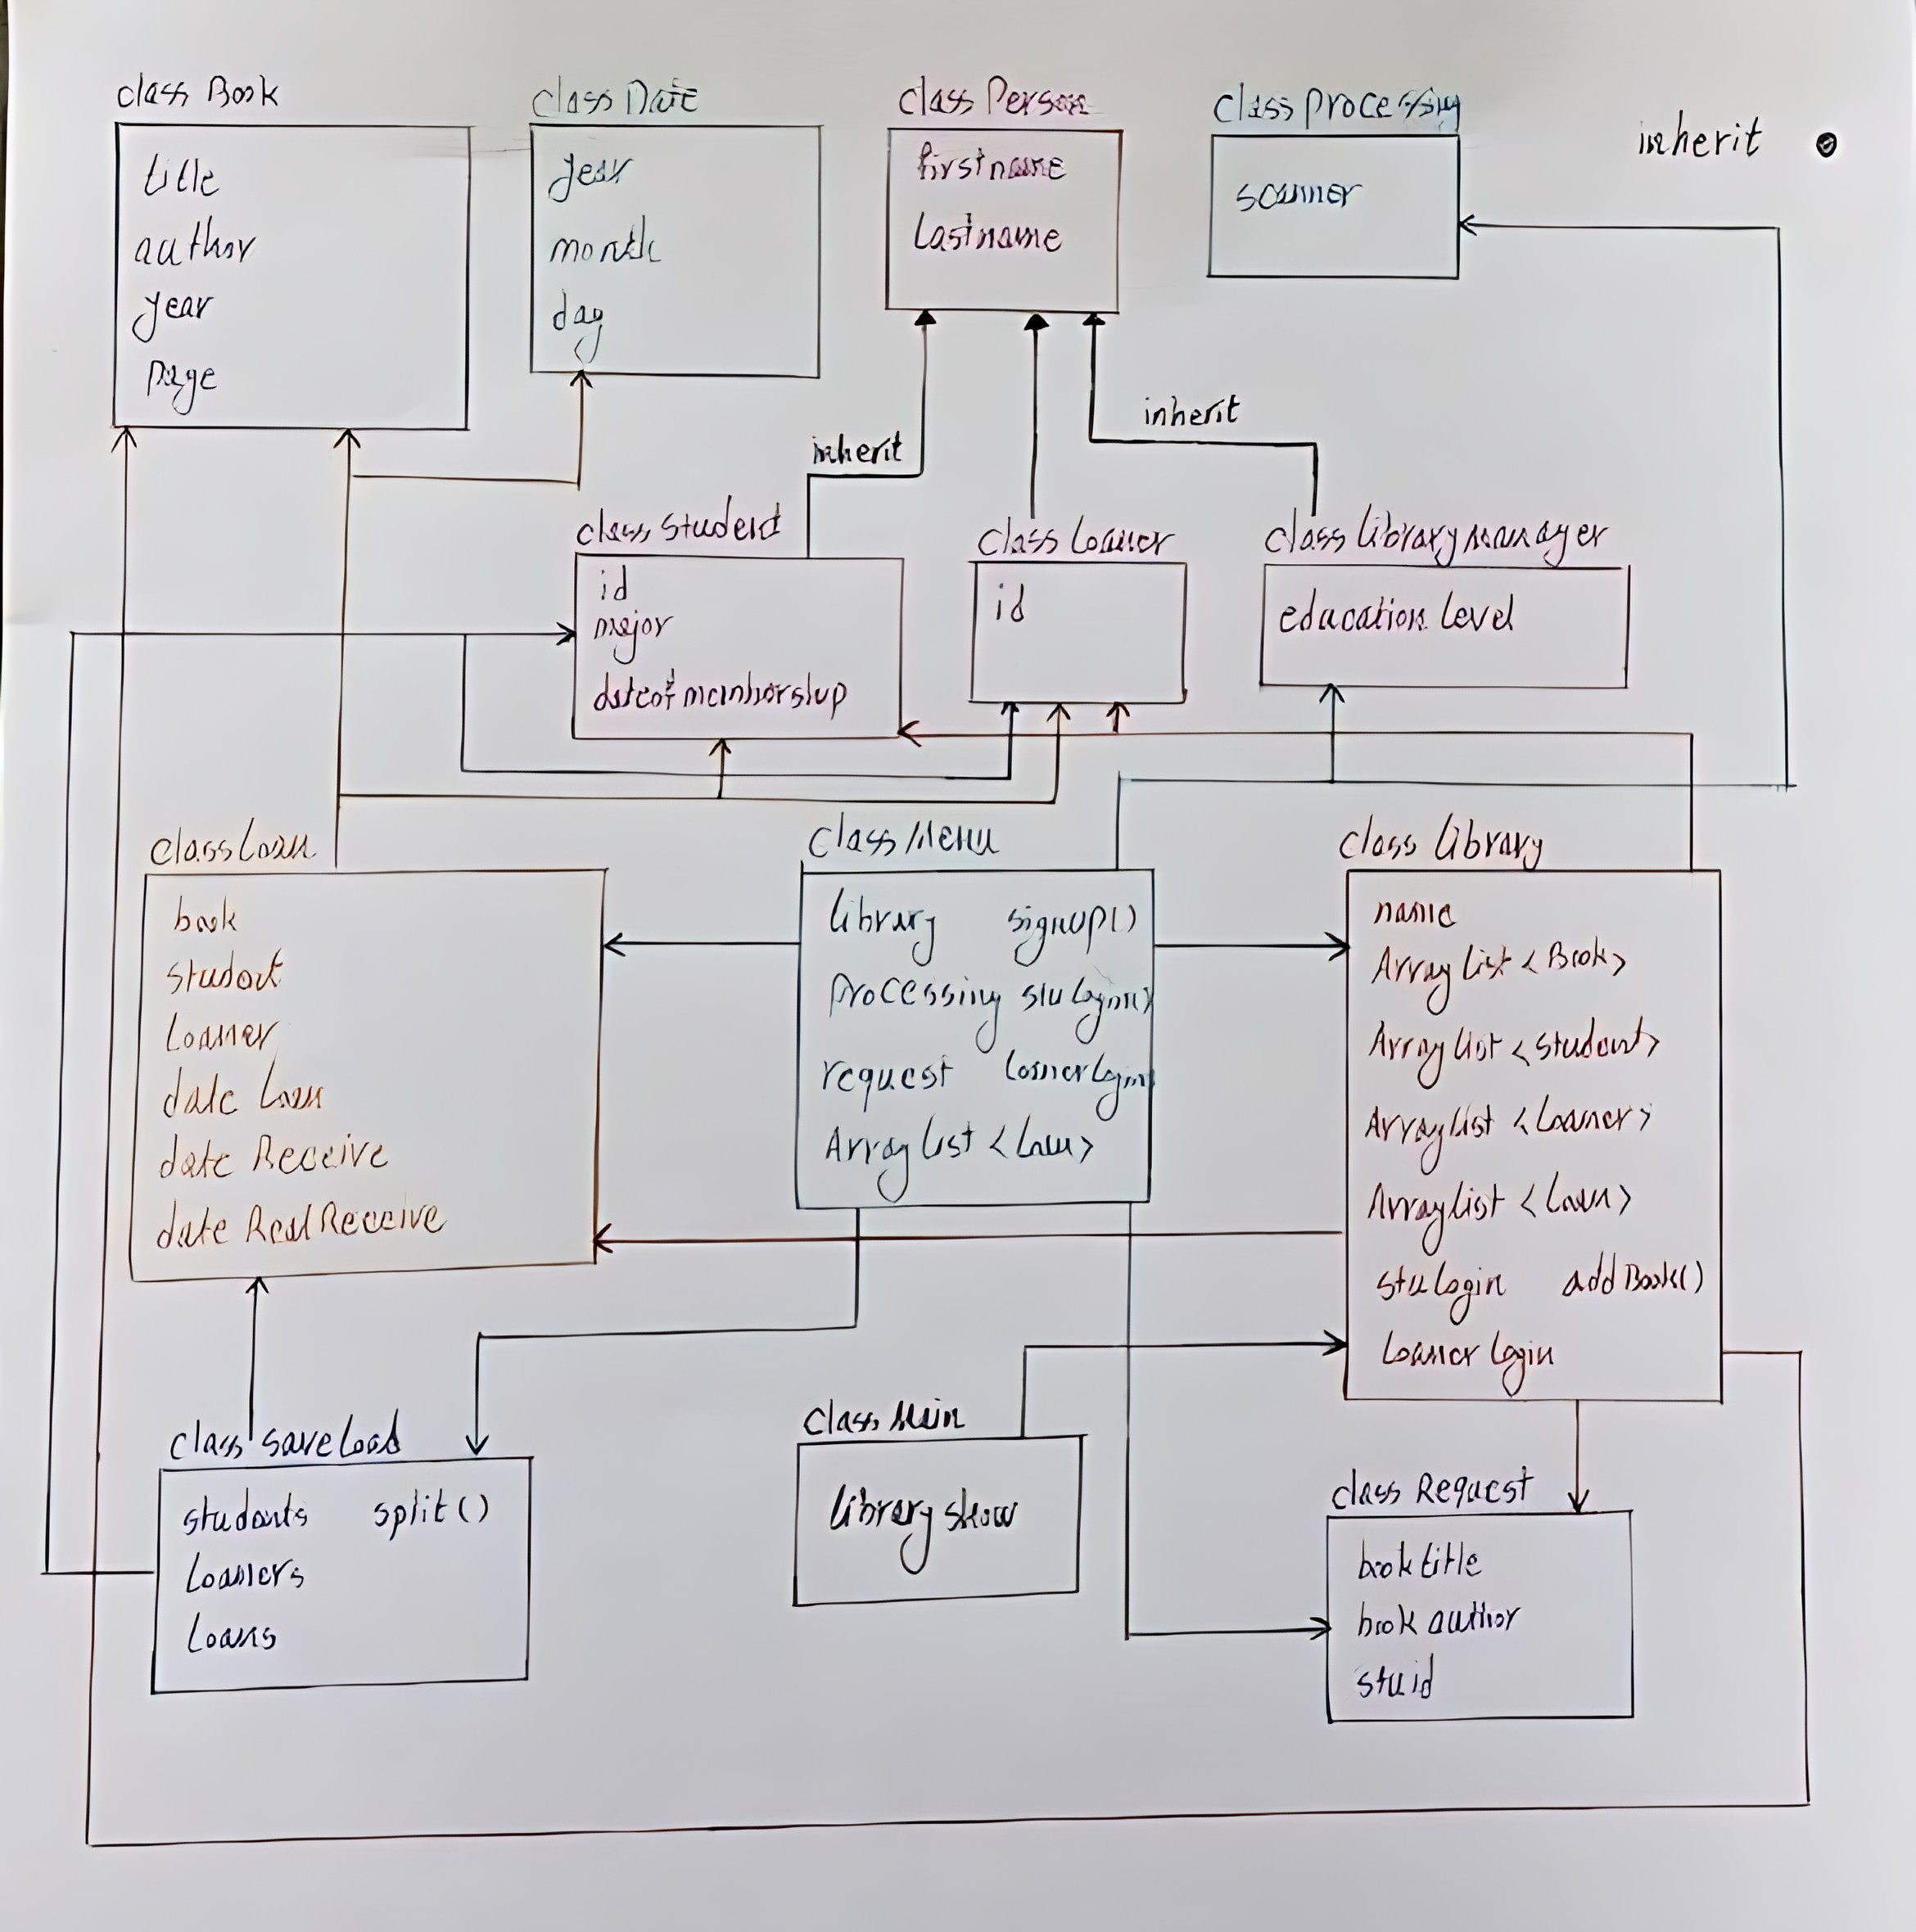 class Book
title
author
year
page
class Date
year
month
day
class Person
firstname
Lastname
class processing
scanner
inherit
inherit
inherit
class student
id
major
dateofmembership
class Loaner
id
class librarymanager
education Level
class Loan
book
student
Loaner
date Loan
date Receive
date RealReceive
class Menu
library signUp()
processing stuLogin()
request LoanerLogin
Array List <Loan>
class library
name
Array List <Book>
Array List <student>
Array List <Loaner>
Array List <Loan>
stuLogin addBook()
Loaner login
class saveLoad
students split()
Loaners
Loans
class Main
library show
class Request
book title
book author
stuid